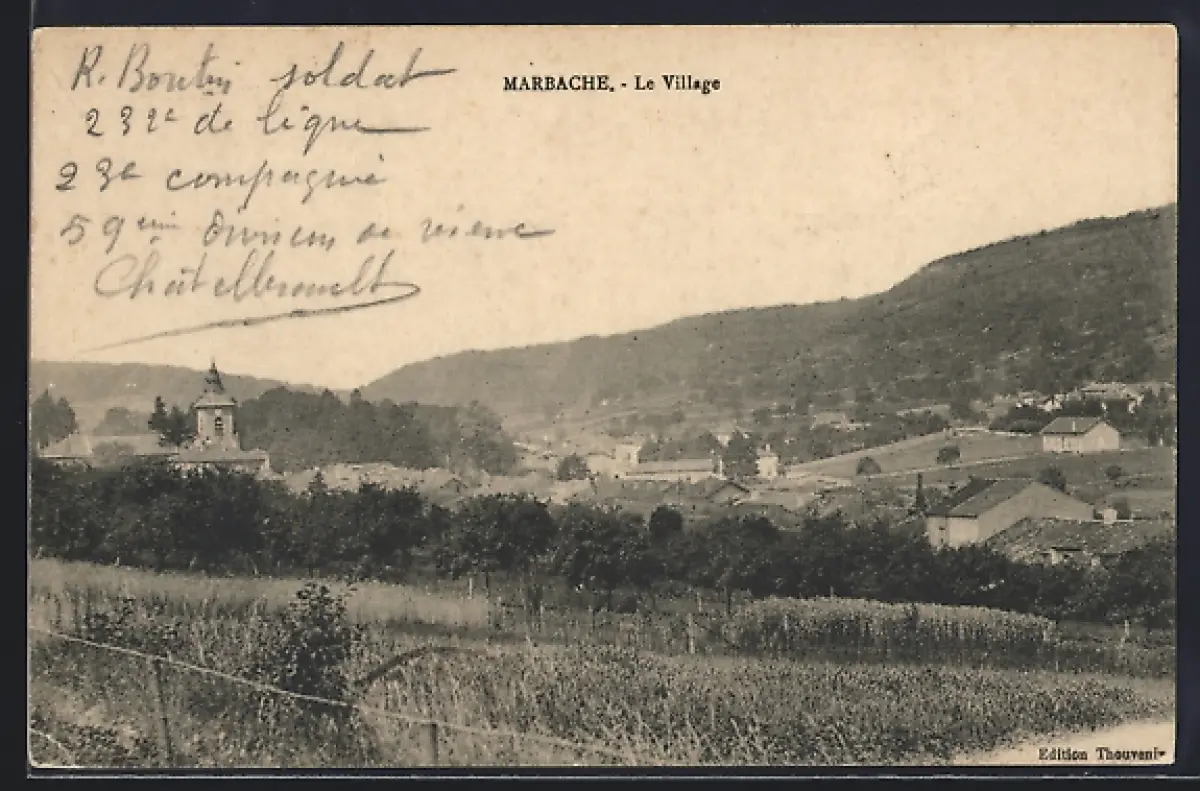 R. Boutin soldat
232e de ligne
23e compagnie
59eme Division de réserve
Châtellerault
MARBACHE. - Le Village
Edition Thouvenin